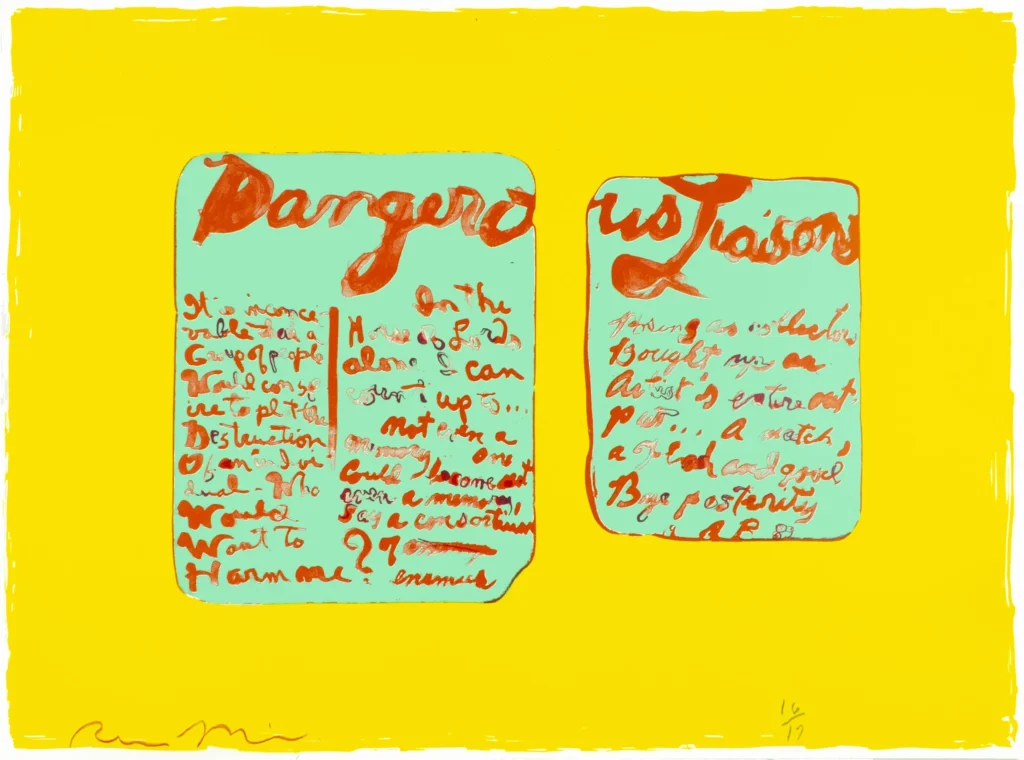 Dangero
us Liaisons
It is inconce
vable that a
Group of people
Would consp
ire to plot the
Destruction
Of an indivi
dual - Who
Would
Want to
Harm me?
In the
House of Lords
alone I can
count up to...
Not even a
memory. One
Could become not
even a memory,
Say a consortium
? of
enemies
collectors
Bought up an
Artist's entire out
put... A match,
a and good
Bye posterity
16/17